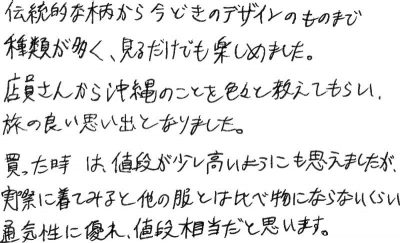 伝統的な柄から今どきのデザインのものまで
種類が多く、見るだけでも楽しめました。
店員さんから沖縄のことを色々と教えてもらい、
旅の良い思い出となりました。
買った時は、値段が少し高いようにも思えましたが、
実際に着てみると他の服とは比べ物にならないくらい
通気性に優れ、値段相当だと思います。